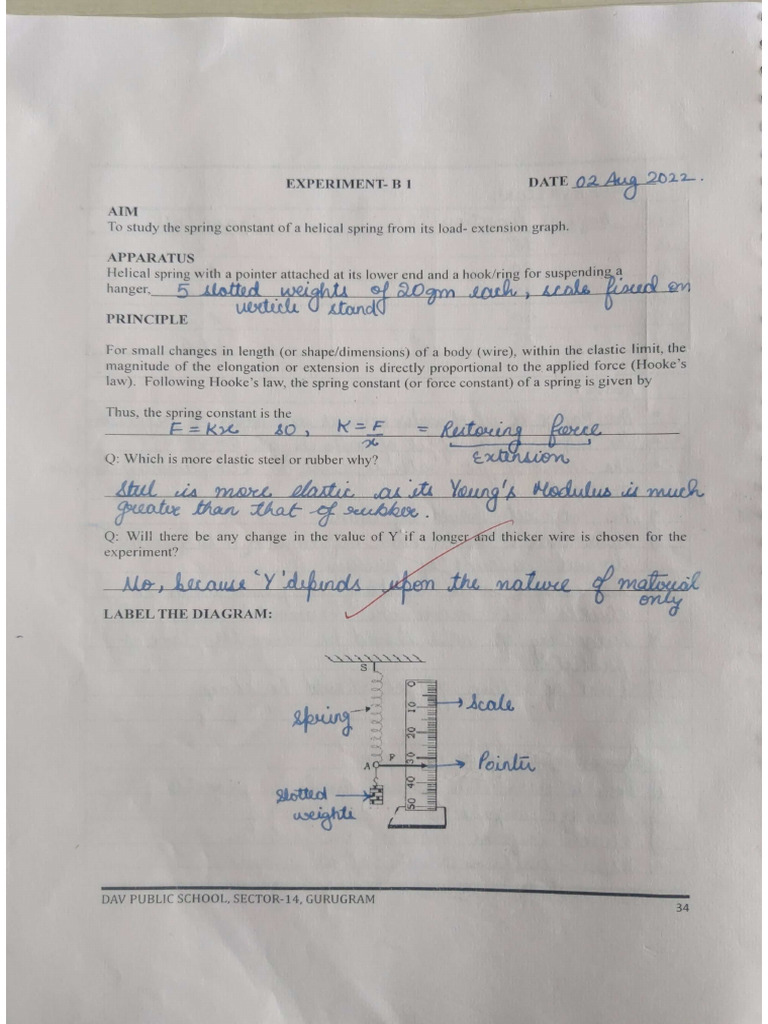 EXPERIMENT- B 1 DATE 02 Aug 2022.
AIM
To study the spring constant of a helical spring from its load- extension graph.
APPARATUS
Helical spring with a pointer attached at its lower end and a hook/ring for suspending a
hanger, 5 slotted weights of 20gm each, scale fixed on
verticle stand
PRINCIPLE
For small changes in length (or shape/dimensions) of a body (wire), within the elastic limit, the
magnitude of the elongation or extension is directly proportional to the applied force (Hooke's
law). Following Hooke's law, the spring constant (or force constant) of a spring is given by
Thus, the spring constant is the
F = Kx so, K = F/x = Restoring force
Extension
Q: Which is more elastic steel or rubber why?
Steel is more elastic as its Young's Modulus is much
greater than that of rubber.
Q: Will there be any change in the value of Y if a longer and thicker wire is chosen for the
experiment?
No, because 'Y' depends upon the nature of material
only
LABEL THE DIAGRAM:
S
0
Spring
10
Scale
20
A P 30 Pointer
40
Slotted
weights
50
DAV PUBLIC SCHOOL, SECTOR-14, GURUGRAM
34